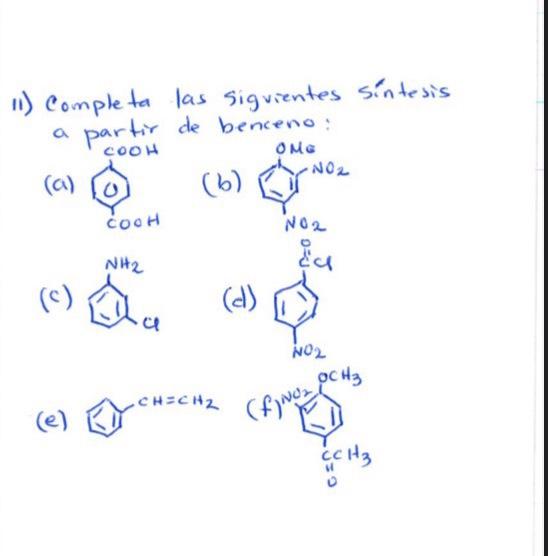 11) Completa las siguientes síntesis
a partir de benceno:
(a) COOH
COOH
(b) OMe
NO2
NO2
(c) NH2
Cl
(d) O
CCl
NO2
(e) CH=CH2
(f) NO2 OCH3
CCH3
O